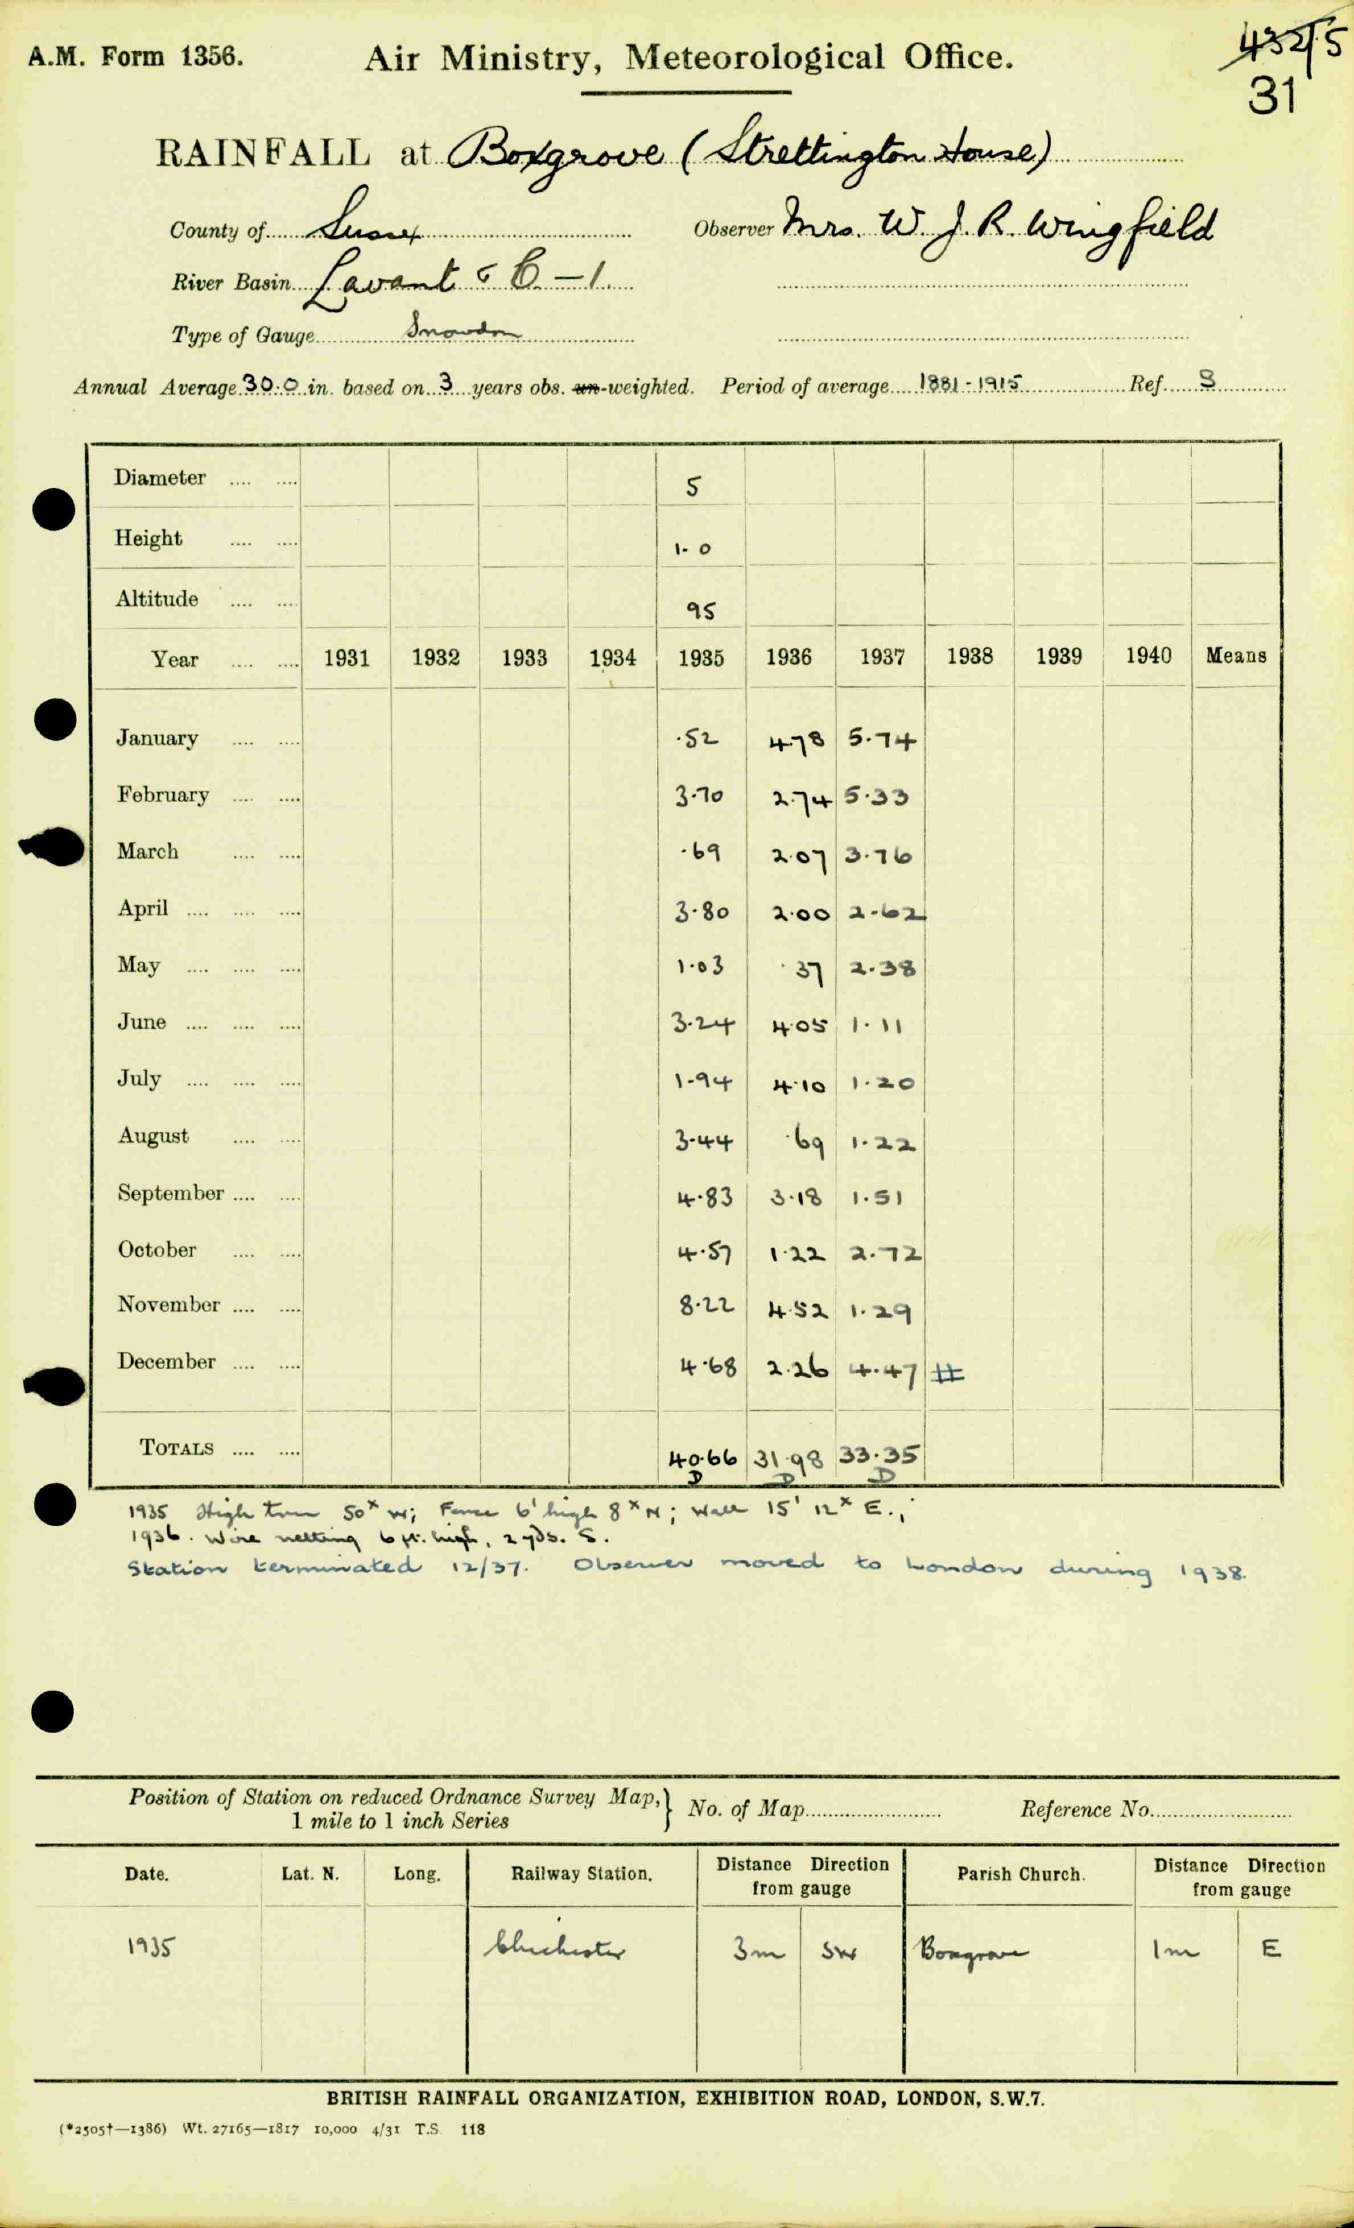 A.M. Form 1356.
Air Ministry, Meteorological Office.
432/5
31
RAINFALL at Boxgrove (Strettington House)
County of Sussex Observer Mrs. W. J. R. Wingfield
River Basin Lavant & C - 1
Type of Gauge Snowdon
Annual Average 30.0 in. based on 3 years obs. un-weighted. Period of average 1881-1915 Ref. S
Diameter .... .... 5
Height .... .... 1.0
Altitude .... .... 95
Year .... .... 1931 1932 1933 1934 1935 1936 1937 1938 1939 1940 Means
January .... .... .52 4.78 5.74
February .... .... 3.70 2.74 5.33
March .... .... .69 2.07 3.76
April .... .... .... 3.80 2.00 2.62
May .... .... .... 1.03 .37 2.38
June .... .... .... 3.24 4.05 1.11
July .... .... .... 1.94 4.10 1.20
August .... .... 3.44 .69 1.22
September .... .... 4.83 3.18 1.51
October .... .... 4.57 1.22 2.72
November .... .... 8.22 4.52 1.29
December .... .... 4.68 2.26 4.47 #
TOTALS .... .... 40.66 31.98 33.35
D D D
1935 High tree 50x W; Fence 6' high 8x N; Wall 15' 12x E.;
1936. Wire netting 6 ft. high, 2 yds. S.
Station terminated 12/37. Observer moved to London during 1938.
Position of Station on reduced Ordnance Survey Map, } No. of Map Reference No.
1 mile to 1 inch Series
Date. Lat. N. Long. Railway Station. Distance Direction from gauge Parish Church. Distance Direction from gauge
1935 Chichester 3m SW Boxgrove 1m E
BRITISH RAINFALL ORGANIZATION, EXHIBITION ROAD, LONDON, S.W.7.
(*2505†—1386) Wt. 27165—1817 10,000 4/31 T.S. 118